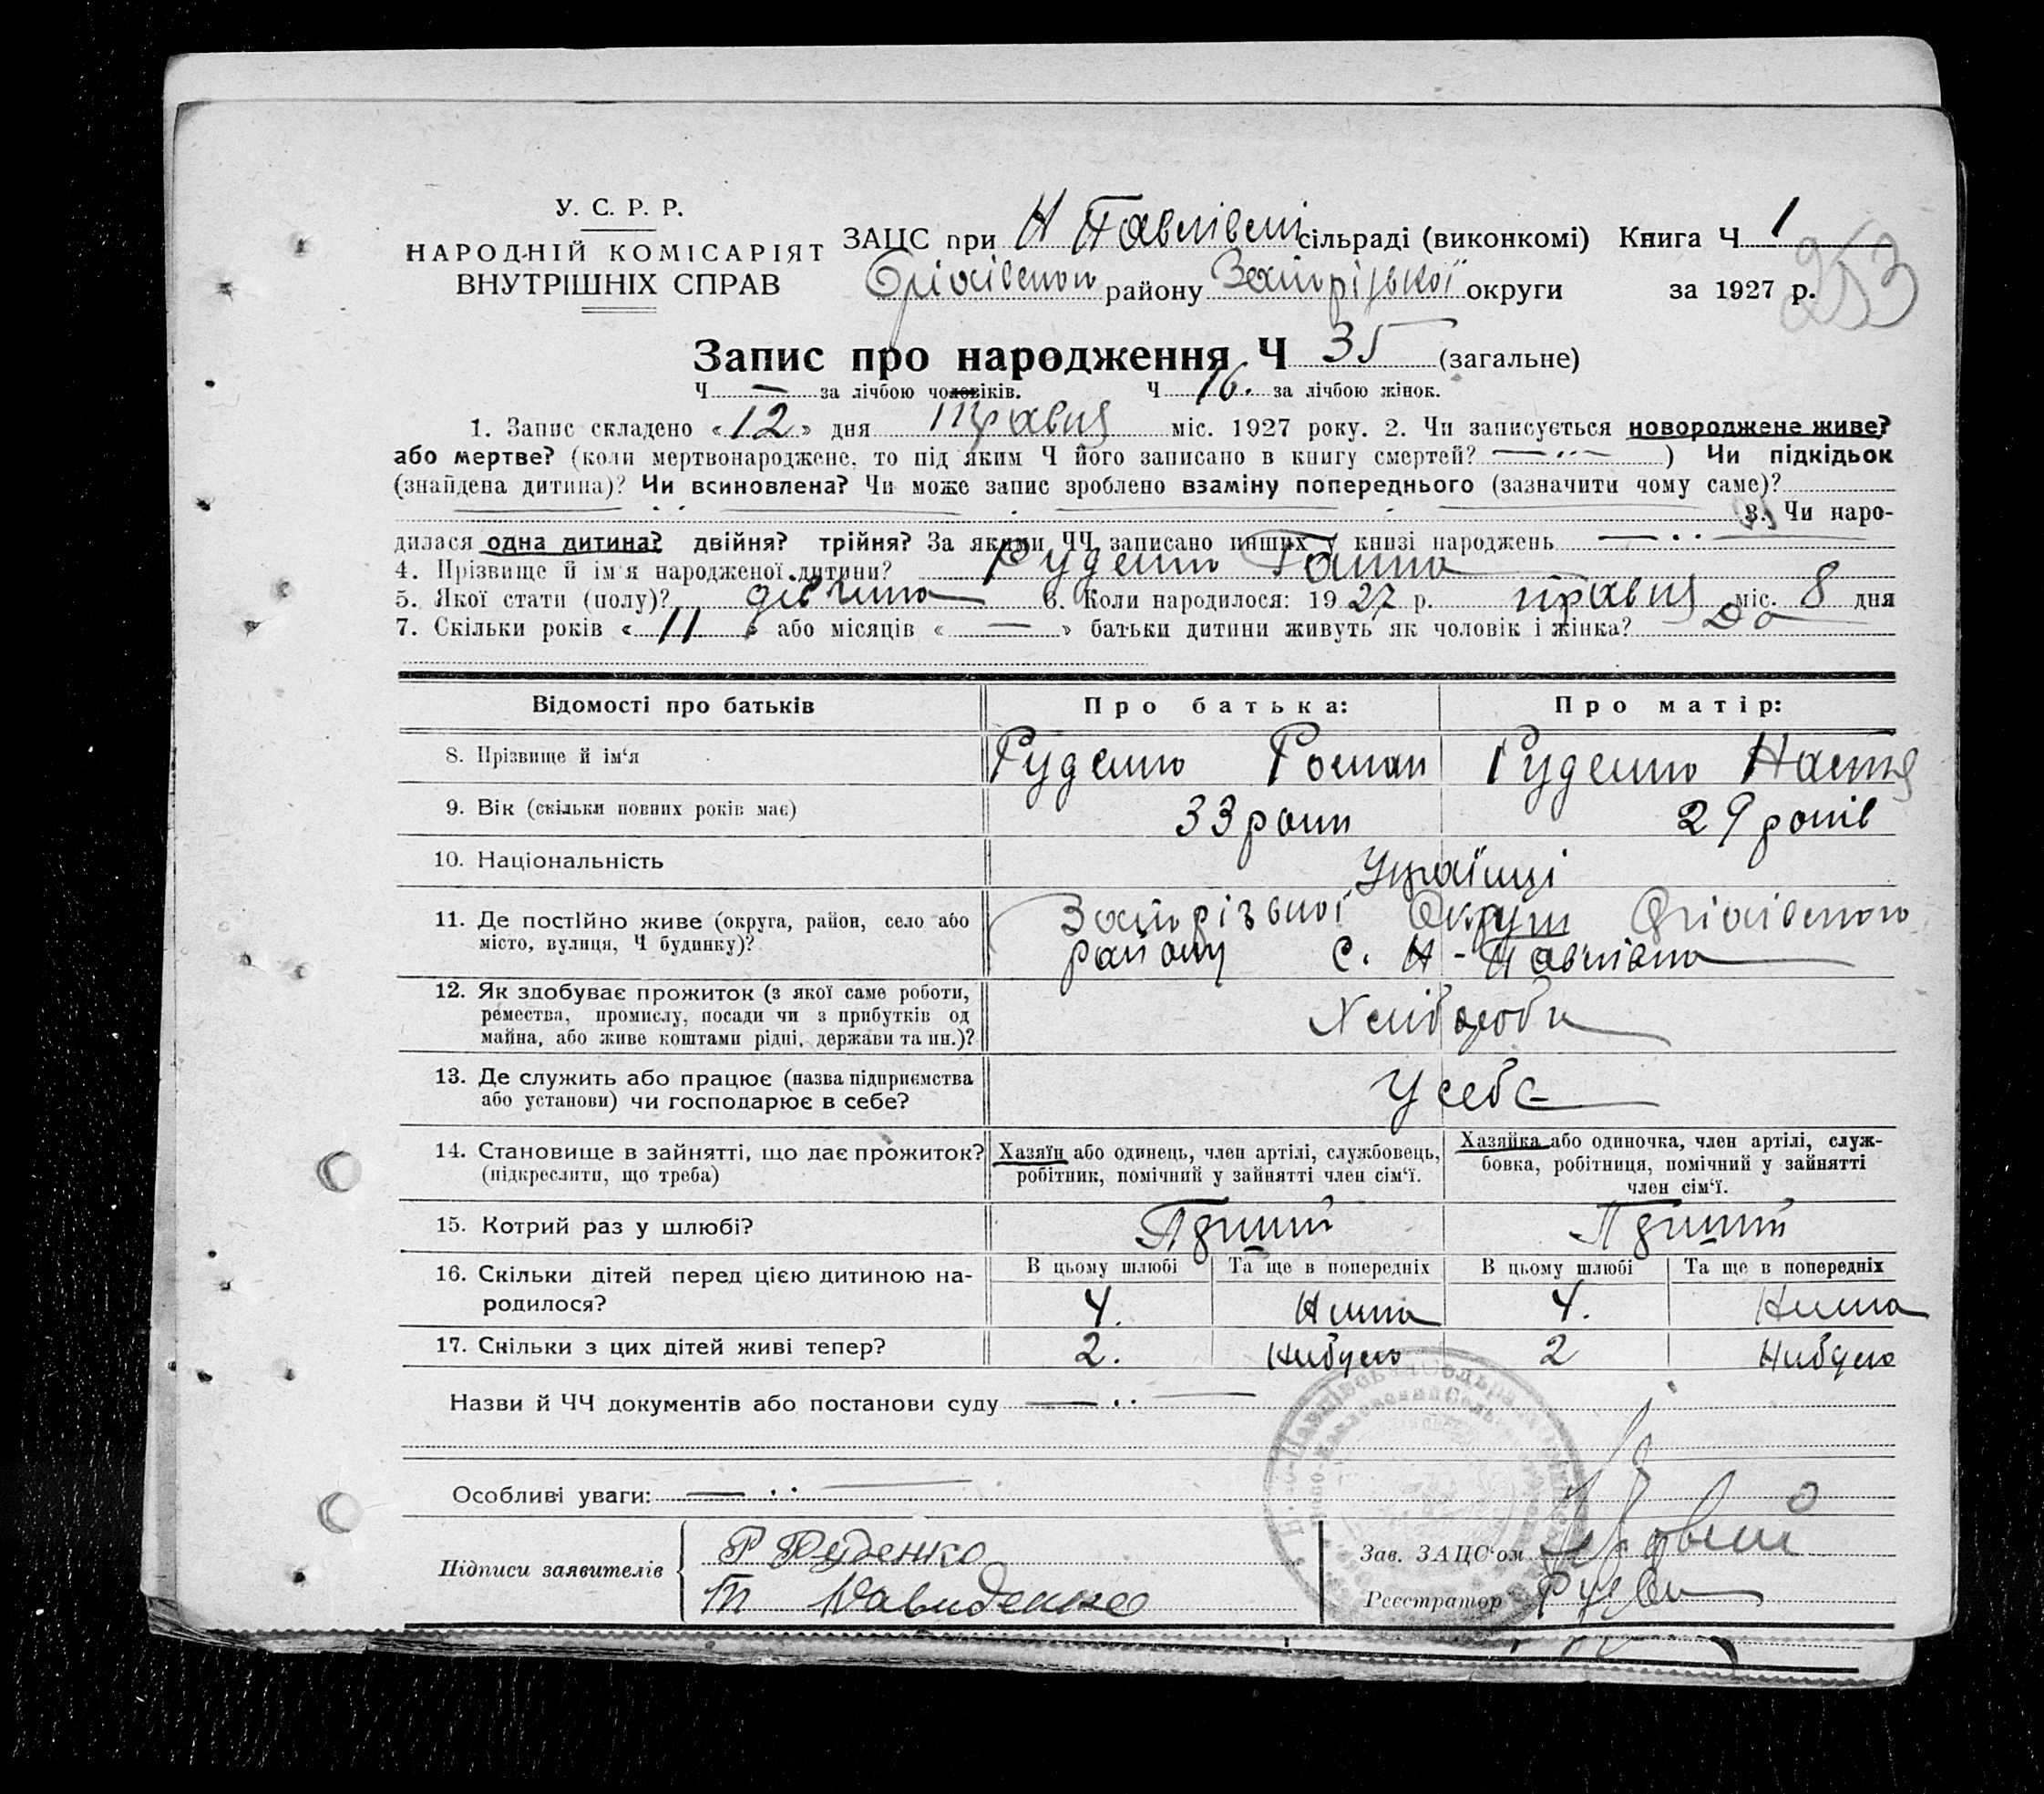 У. С. Р. Р.
НАРОДНІЙ КОМІСАРІЯТ
ВНУТРІШНІХ СПРАВ
ЗАЦС при Н Павлівскі сільраді (виконкомі) Книга Ч 1
253
Оріхівского району Запорізької округи за 1927 р.
Запис про народження Ч 35 (загальне)
Ч — за лічбою чоловіків. Ч 16. за лічбою жінок.
1. Запис складено «12» дня Травня міс. 1927 року. 2. Чи записується новороджене живе?
або мертве? (коли мертвонароджене, то під яким Ч його записано в книгу смертей? — ) Чи підкідьок
(знайдена дитина)? Чи всиновлена? Чи може запис зроблено взаміну попереднього (зазначити чому саме)?
3. Чи наро-
дилася одна дитина? двійня? трійня? За якими ЧЧ записано инших у книзі народжень —
4. Прізвище й ім'я народженої дитини? Руденко Ганна
5. Якої стати (полу)? дівчина 6. Коли народилося: 1927 р. травня міс. 8 дня
7. Скільки років «11» або місяців « — » батьки дитини живуть як чоловік і жінка? До
Відомості про батьків Про батька: Про матір:
8. Прізвище й ім‘я Руденко Роман Руденко Настя
9. Вік (скільки повних років має) 33 роки 29 років
10. Національність Українці
11. Де постійно живе (округа, район, село або Запорізької Округи Оріхівского
місто, вулиця, Ч будинку)? району С. Н-Павлівка
12. Як здобуває прожиток (з якої саме роботи,
ремества, промислу, посади чи з прибутків од Хлібороби
майна, або живе коштами рідні, держави та ин.)?
13. Де служить або працює (назва підприємства У себе
або установи) чи господарює в себе?
14. Становище в зайнятті, що дає прожиток? Хазяїн або одинець, член артілі, службовець, Хазяйка або одиночка, член артілі, служ-
(підкреслити, що треба) робітник, помічний у зайнятті член сім‘ї. бовка, робітниця, помічний у зайнятті
член сім‘ї.
15. Котрий раз у шлюбі?
16. Скільки дітей перед цією дитиною на- В цьому шлюбі Та ще в попередніх В цьому шлюбі Та ще в попередніх
родилося? 4. Нима 4. Нима
17. Скільки з цих дітей живі тепер? 2. Нибуло 2 Нибуло
Назви й ЧЧ документів або постанови суду —
Особливі уваги: —
Підписи заявителів Р Руденко Зав. ЗАЦС‘ом
Т Давиденко Реєстратор